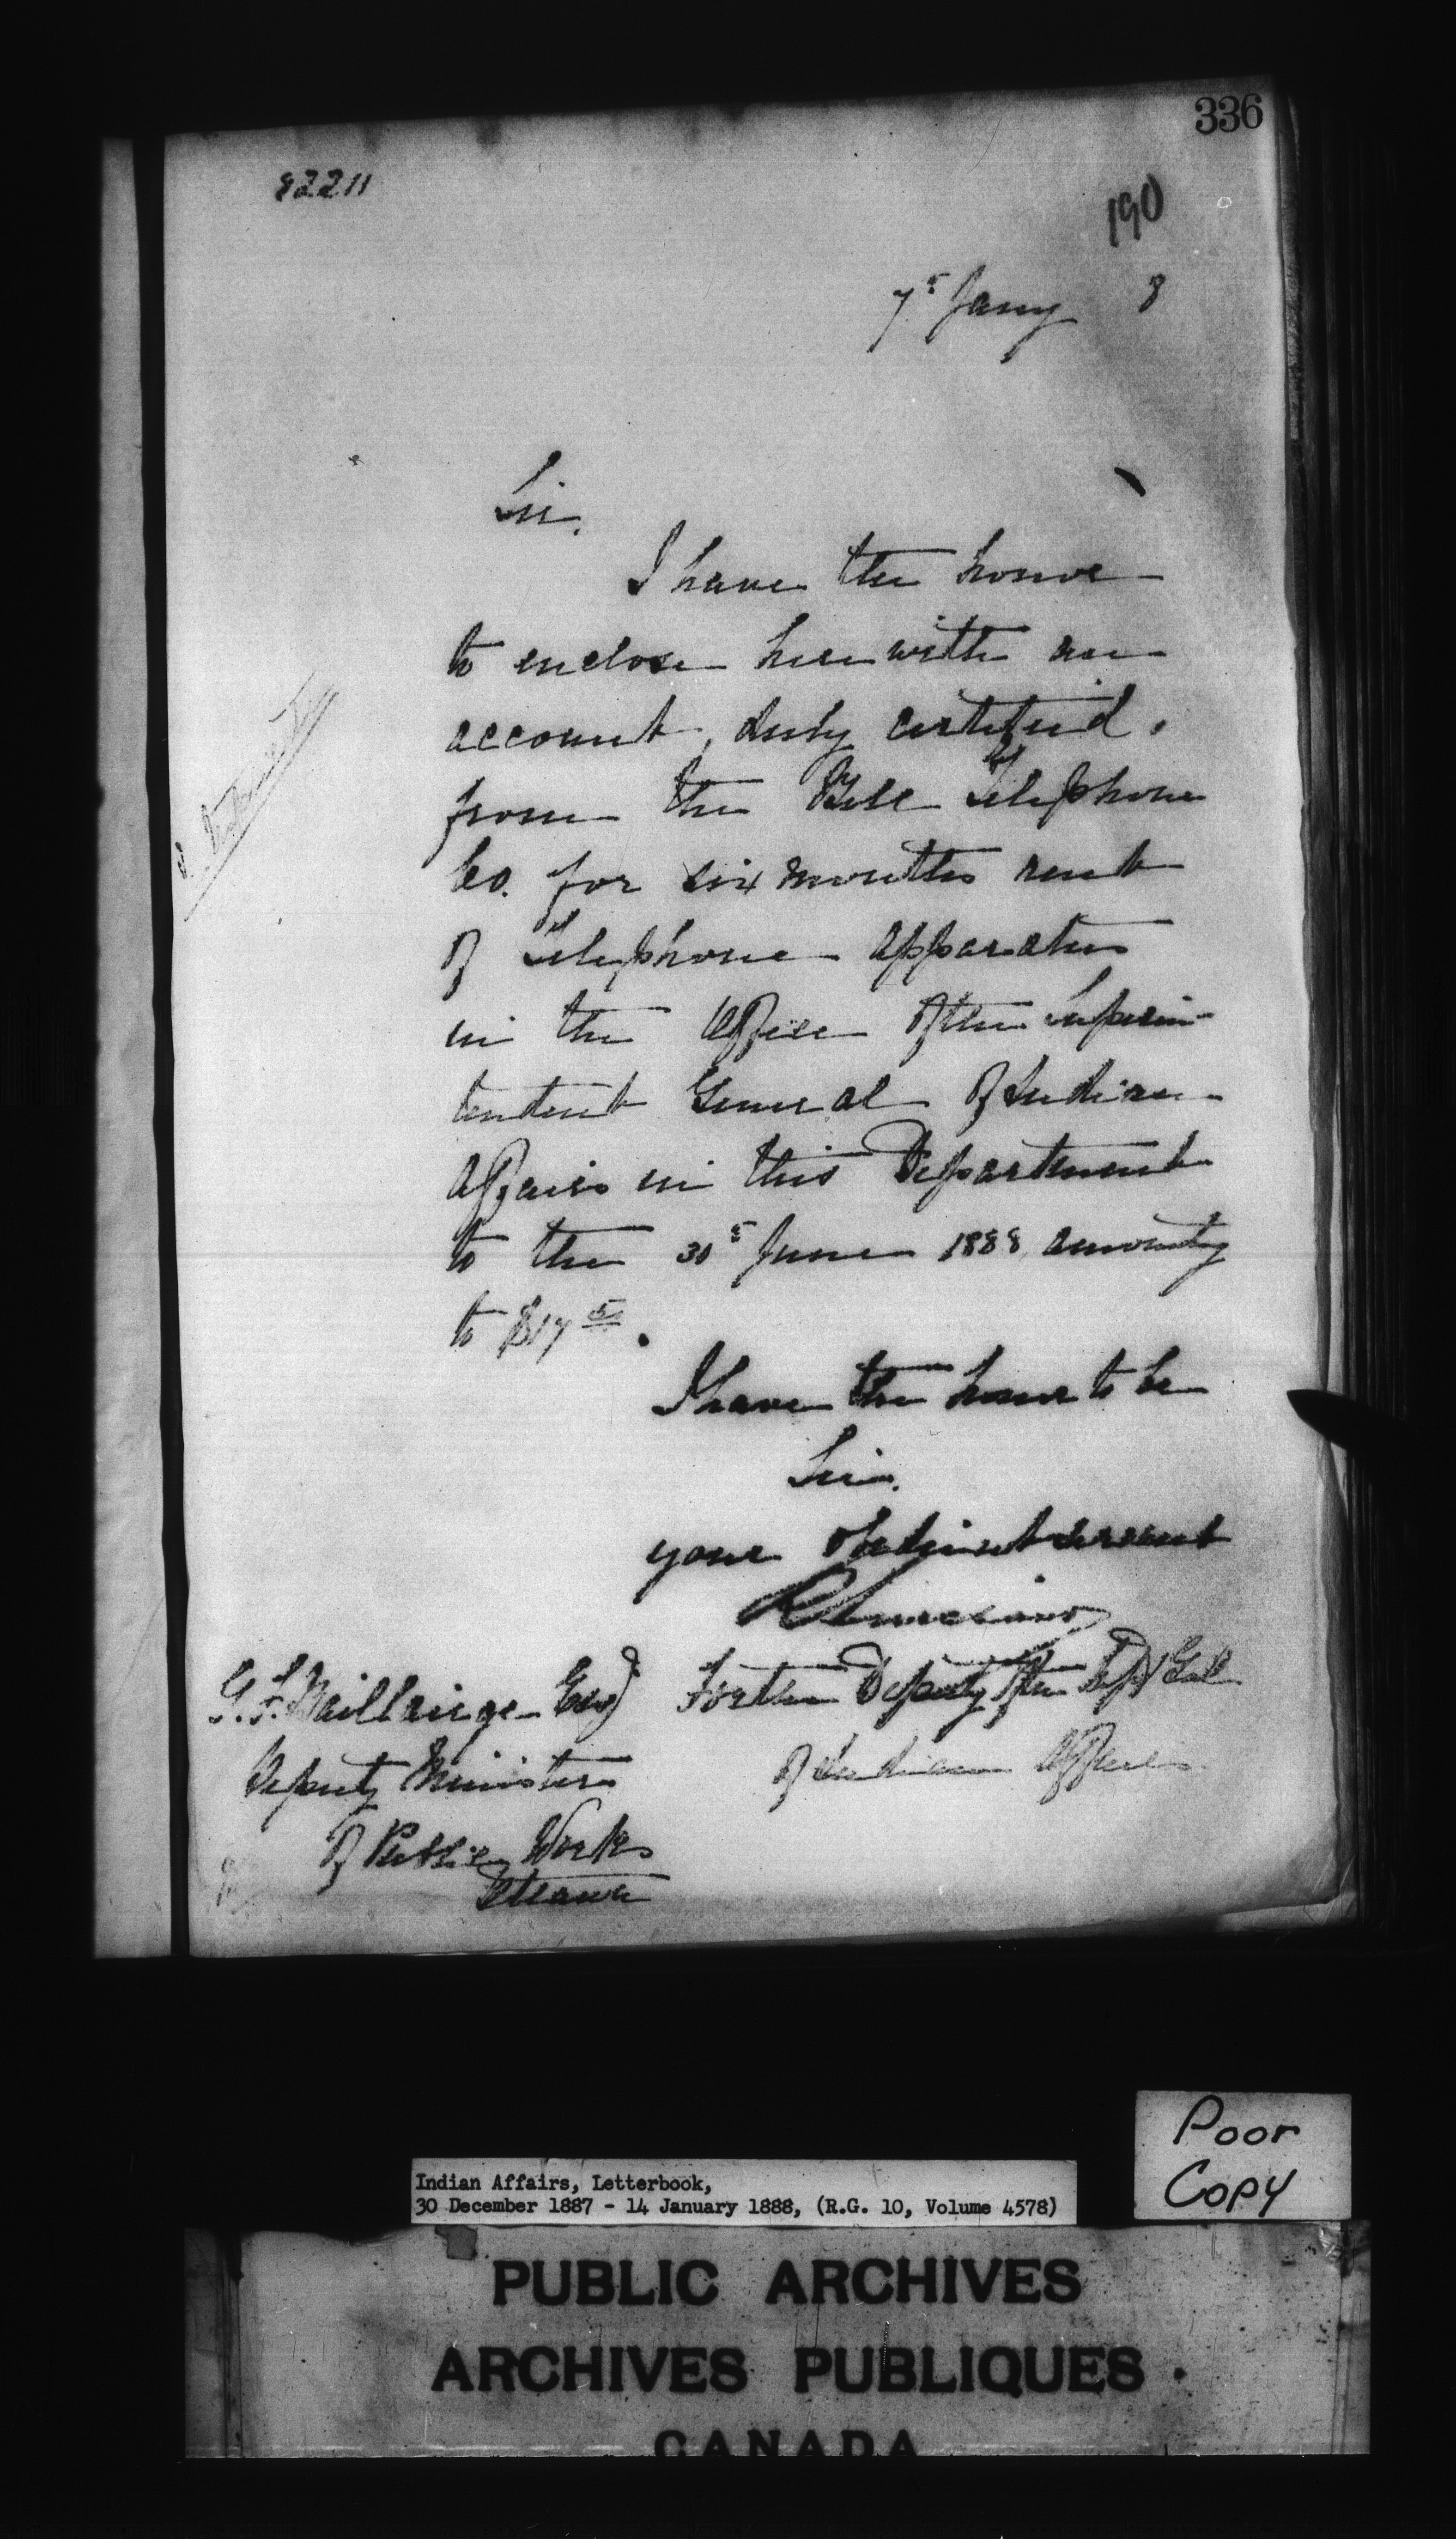 336
82211
190
7th Jany 8
Sir,
I have the honor
to enclose herewith an
account, duly certified,
from the Bell Telephone
Co. for six months rent
of Telephone apparatus
in the Office of the Superin-
tendent General of Indian
Affairs in this Department
to the 30th June 1888 amountg
to $17 50.
I have the honor to be
Sir,
your obedient servant
G. F. Baillairge Esq For the Deputy of the Supt Genl
Deputy Minister of Indian Affairs
of Public Works
Ottawa
Poor
Copy
Indian Affairs, Letterbook,
30 December 1887 - 14 January 1888, (R.G. 10, Volume 4578)
PUBLIC ARCHIVES
ARCHIVES PUBLIQUES
CANADA